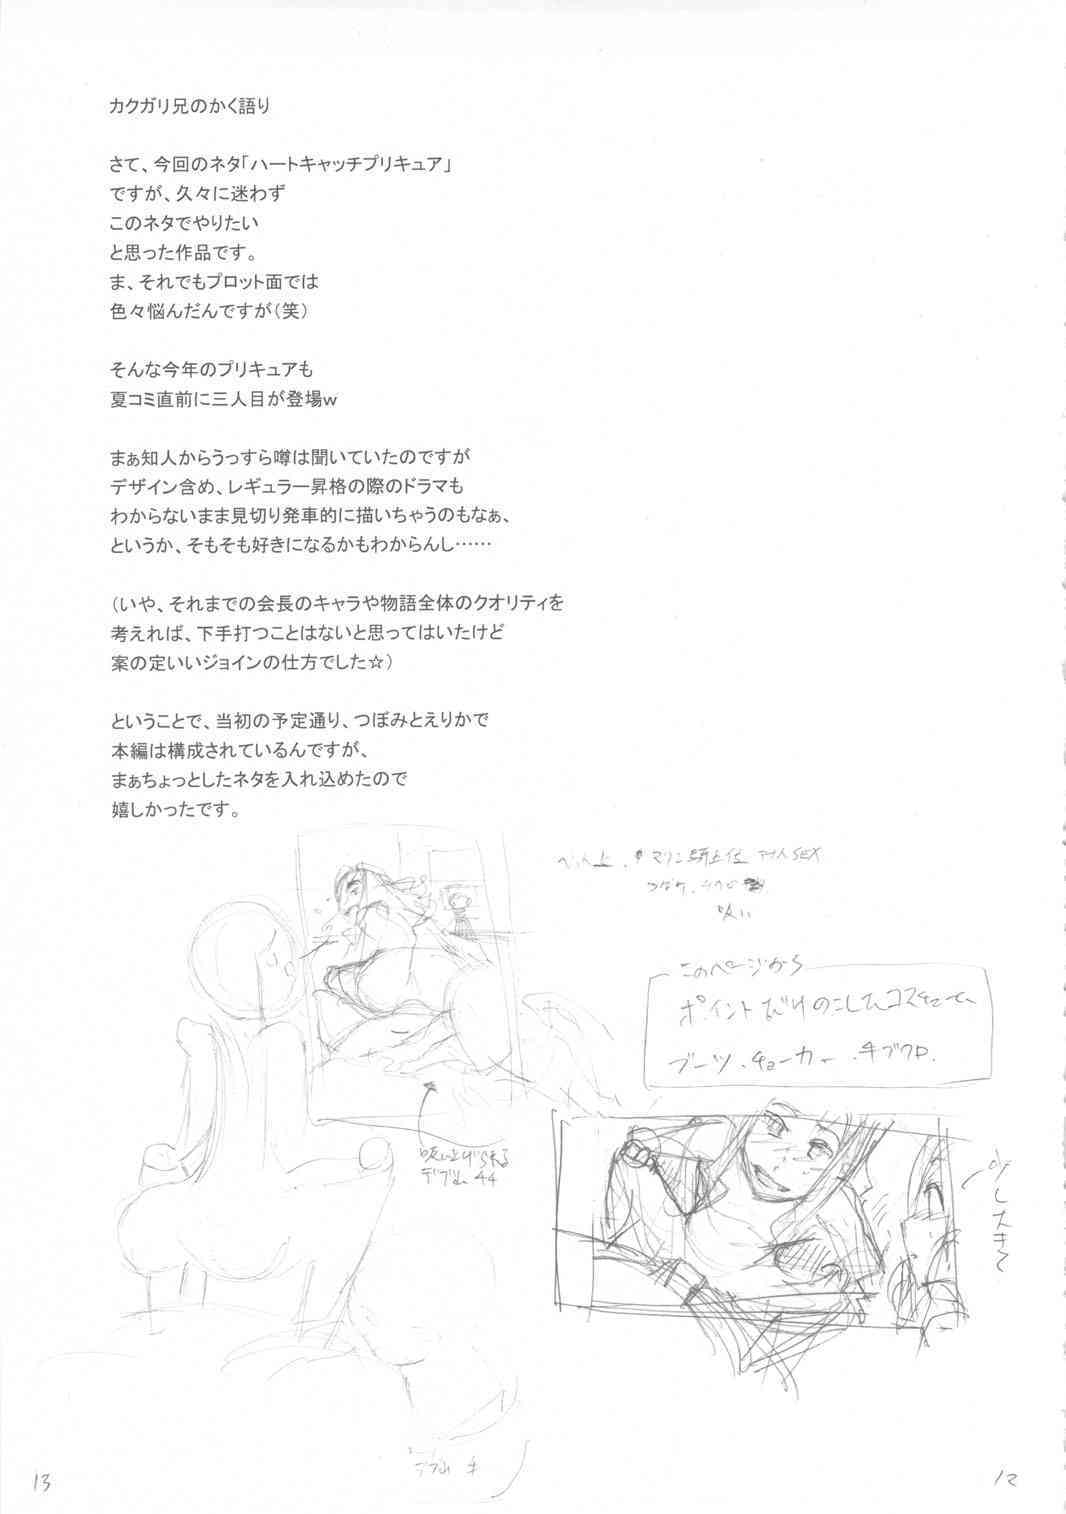 カクガリ兄のかく語り
さて、今回のネタ「ハートキャッチプリキュア」
ですが、久々に迷わず
このネタでやりたい
と思った作品です。
ま、それでもプロット面では
色々悩んだんですが(笑)
そんな今年のプリキュアも
夏コミ直前に三人目が登場w
まぁ知人からうっすら噂は聞いていたのですが
デザイン含め、レギュラー昇格の際のドラマも
わからないまま見切り発車的に描いちゃうのもなぁ、
というか、そもそも好きになるかもわからんし……
(いや、それまでの会長のキャラや物語全体のクオリティを
考えれば、下手打つことはないと思ってはいたけど
案の定いいジョインの仕方でした☆)
ということで、当初の予定通り、つぼみとえりかで
本編は構成されているんですが、
まぁちょっとしたネタを入れ込めたので
嬉しかったです。
このページから
ブーツ、チョーカー、手ブクロ
13
12